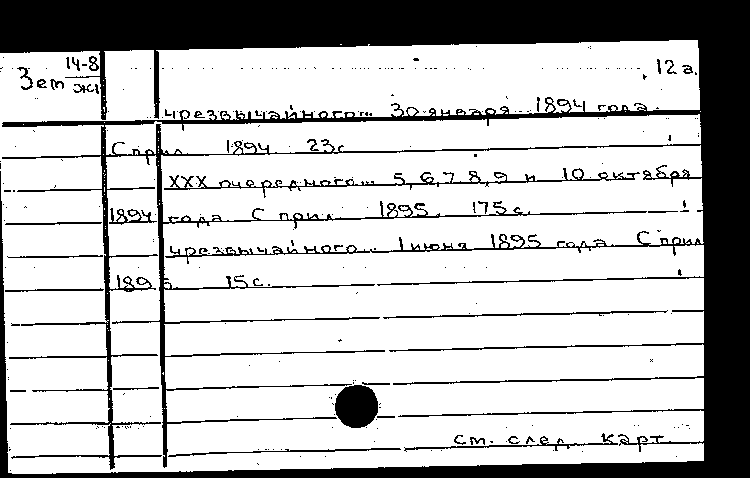 Зет 14-8 12а.
ЭК1
чрезвычайного... 30 января 1894 года.
С прил. 1894 23с.
XXX очередного... 5, 6, 7, 8, 9 и 10 октября
1894 года. С прил. 1895. 175 с.
чрезвычайного... 1 июня 1895 года. С прил.
1895. 15 с.
см. след. карт.